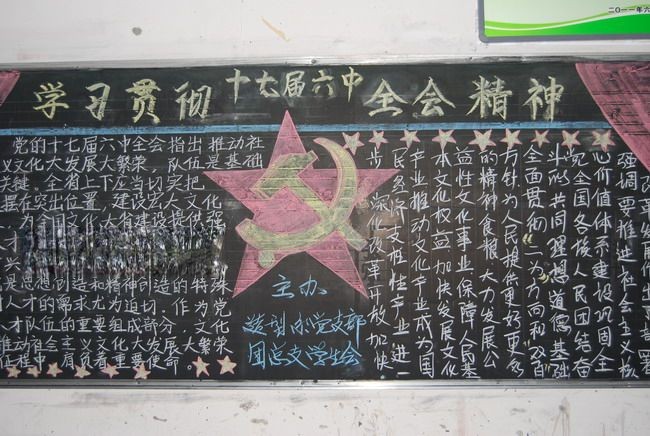 二〇一一年六
学习贯彻十七届六中全会精神
党的十七届六中全会指出 推动社
义文化大发展大繁荣 队伍是基础
关键。全省上下应当切实把
摆在突出位置 建设宏大文化
为全国文化人省建设提供强
才
兴
是思想创造和精神创造的特殊
人才的需求尤为迫切，作为党
人才队伍的重要组成部分，文化
推动社会主义文化大发展大繁荣
征程中 肩负着重要使命。
主办
造型 小党支部
团总支学生会
强调要推进社会主义核
心价值体系建设巩固全
党全国各族人民团结奋
斗的共同理想道德基础
全面贯彻“二为”方向和“双百”
方针为人民提供更好更多
的精神食粮 大力发展公
益性文化事业保障人民基
本文化权益加快发展文化
产业推动文化产业成为国
民经济支柱性产业进一
步深化改革开放加快